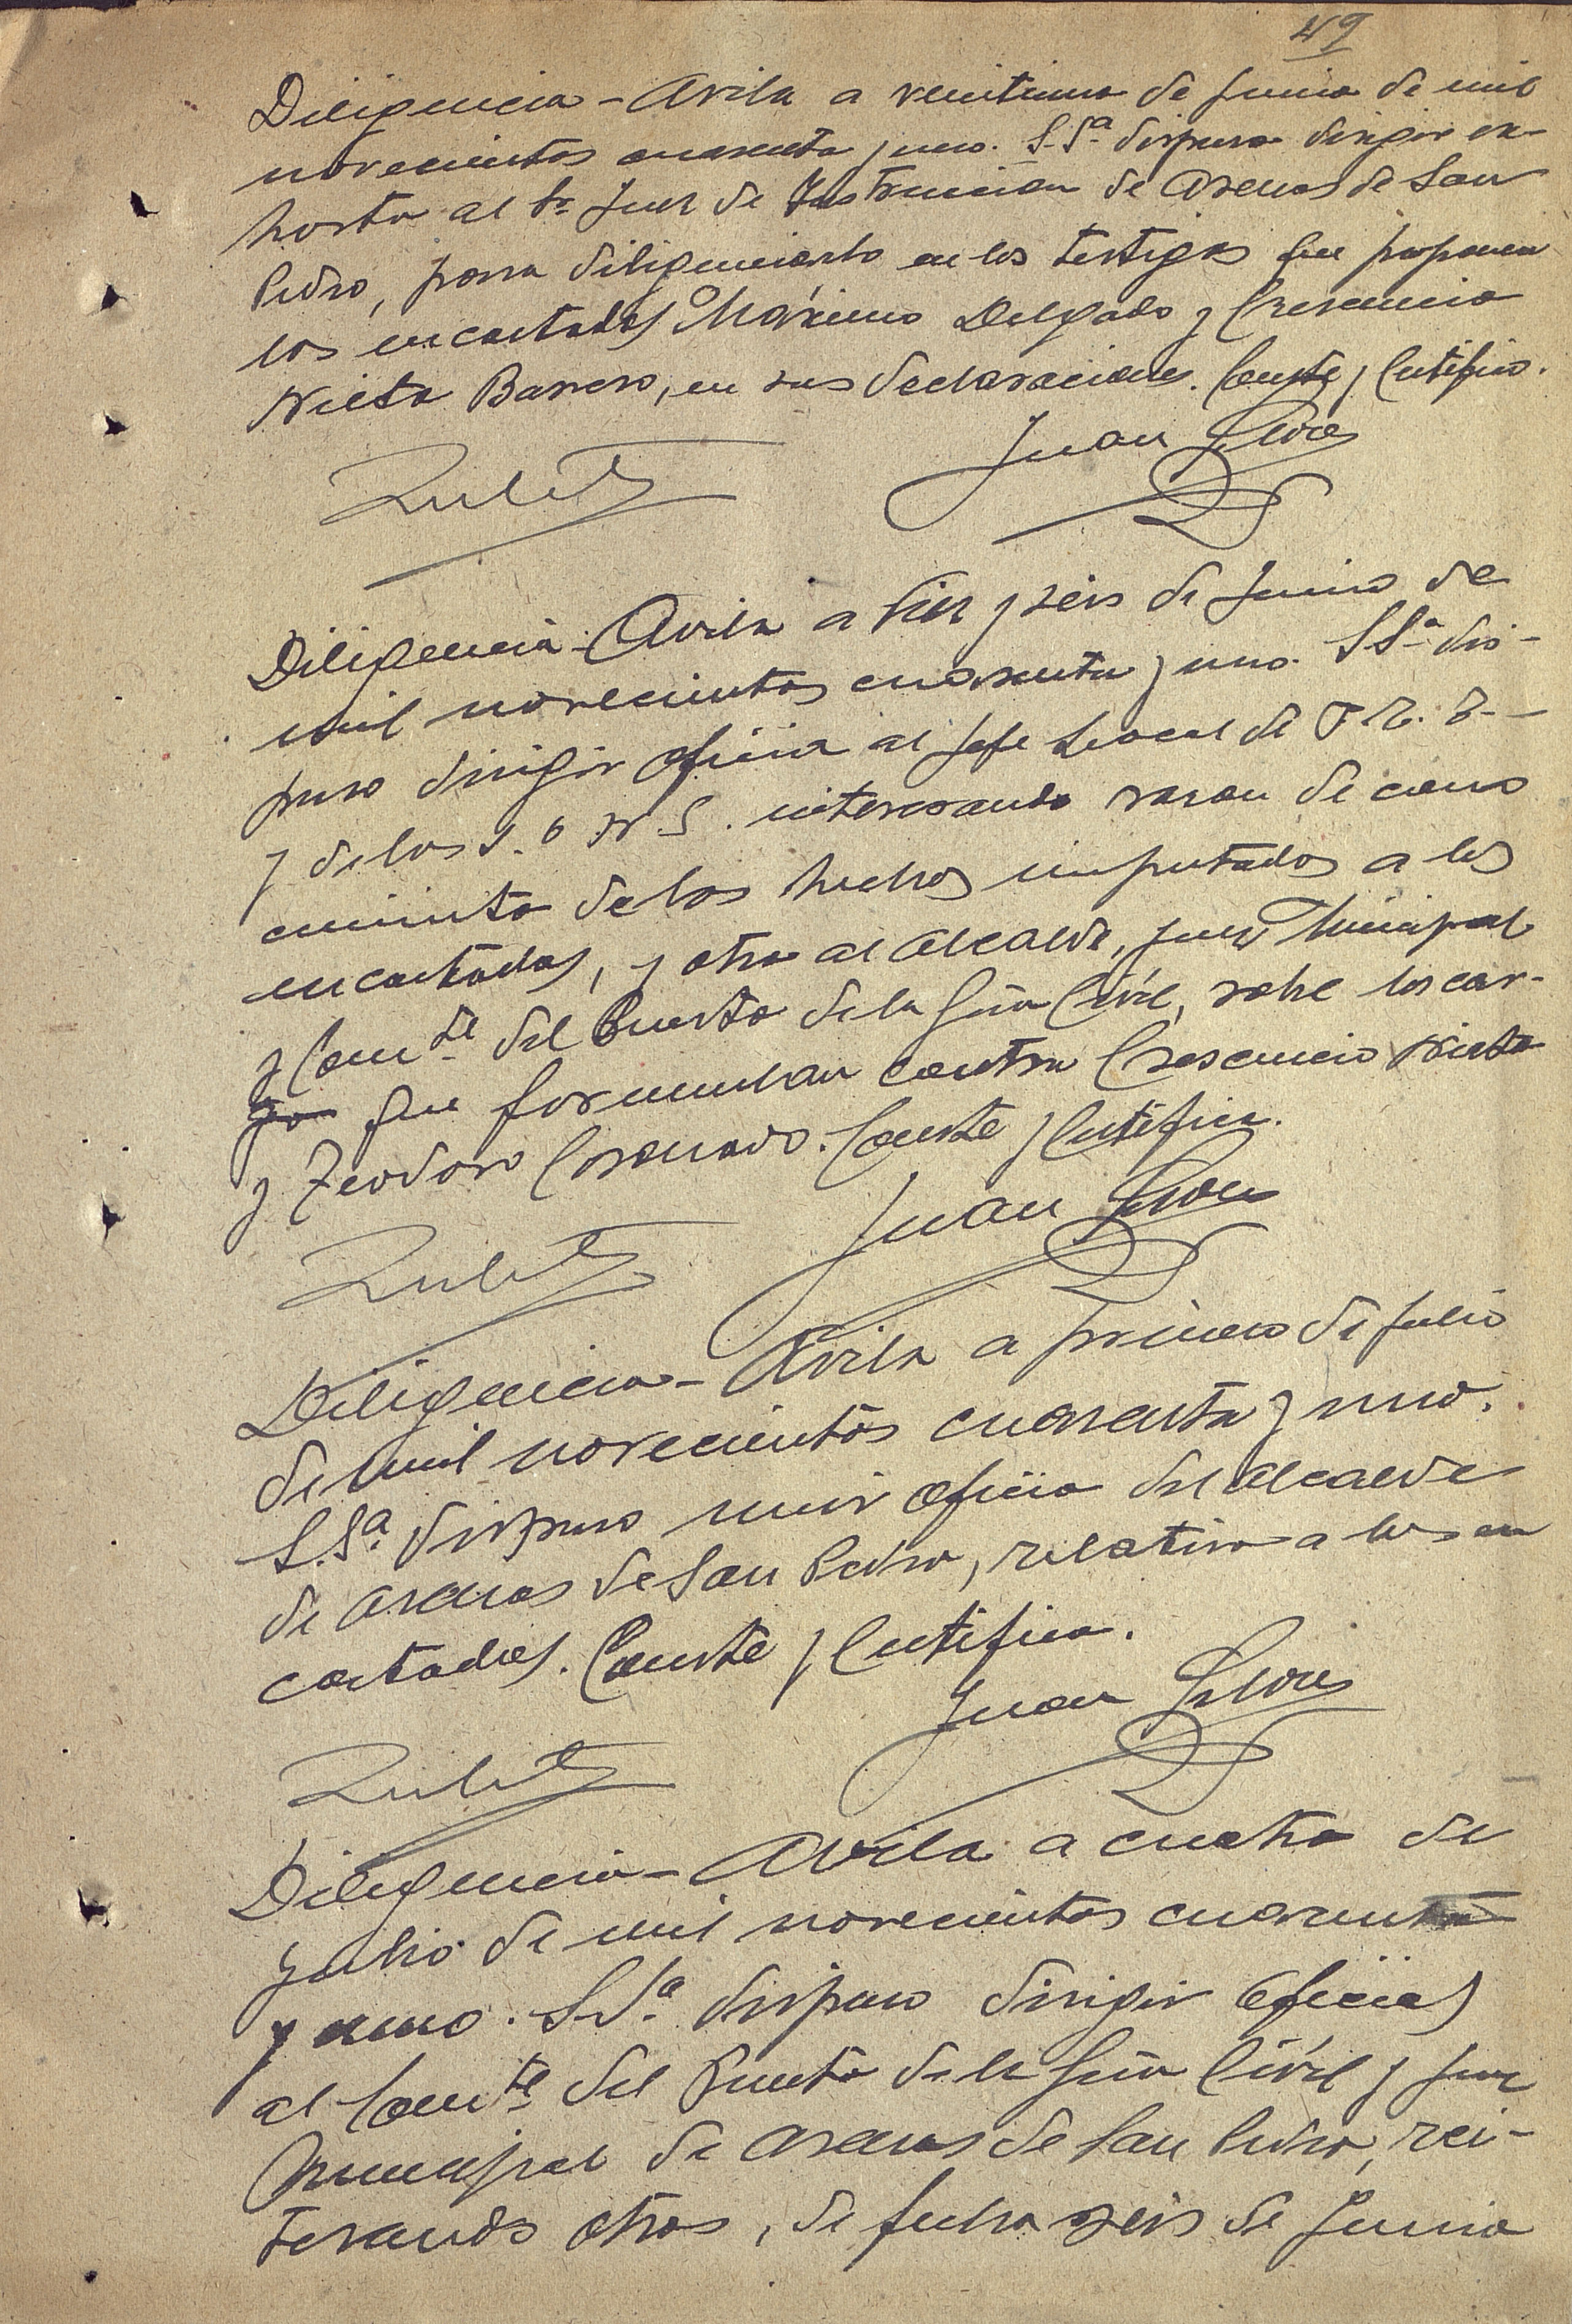 49
Diligencia - Avila a veintiuno de Junio de mil
novecientos cuarenta y uno. S.Sª dispuso dirigir ex-
horto al Sr Juez de Instruccion de Arenas de San
Pedro, para diligenciarlo en los testigos que proponen
los encartados Máximo Delgado y Crescencio
Nieto Barrero, en sus declaraciones. Conste y Certifico.
Juan
Diligencia - Avila a diez y seis de Junio de
mil novecientos cuarenta y uno. S Sª dis-
puso dirigir oficio al Jefe Local de F. E. T.-
y de las J. O. N. S. interesando razon de cono
cimiento de los hechos imputados a los
encartados, y otro al Alcalde, Juez Municipal
y Comte del Puesto de la Gªa Civil, sobe los car-
go que formulan contra Crescencio Nieto
y Teodoro Coronado. Conste y Certifico.
Juan
Diligencia - Avila a primero de Julio
de mil novecientos cuarenta y uno.
S.Sª. dispuso unir oficio del Alcalde
de Arenas de San Pedro, relativo a los en
cartados. Conste y Certifico.
Juan
Diligencia - Avila a cuatro de
Julio de mil novecientos cuarenta
y uno. S.Sª. dispuso dirigir oficios
al Comte del Puesto de la Gªa Civil y Juez
Municipal de Arenas de San Pedro, rei-
terando otros, de fecha seis de Junio